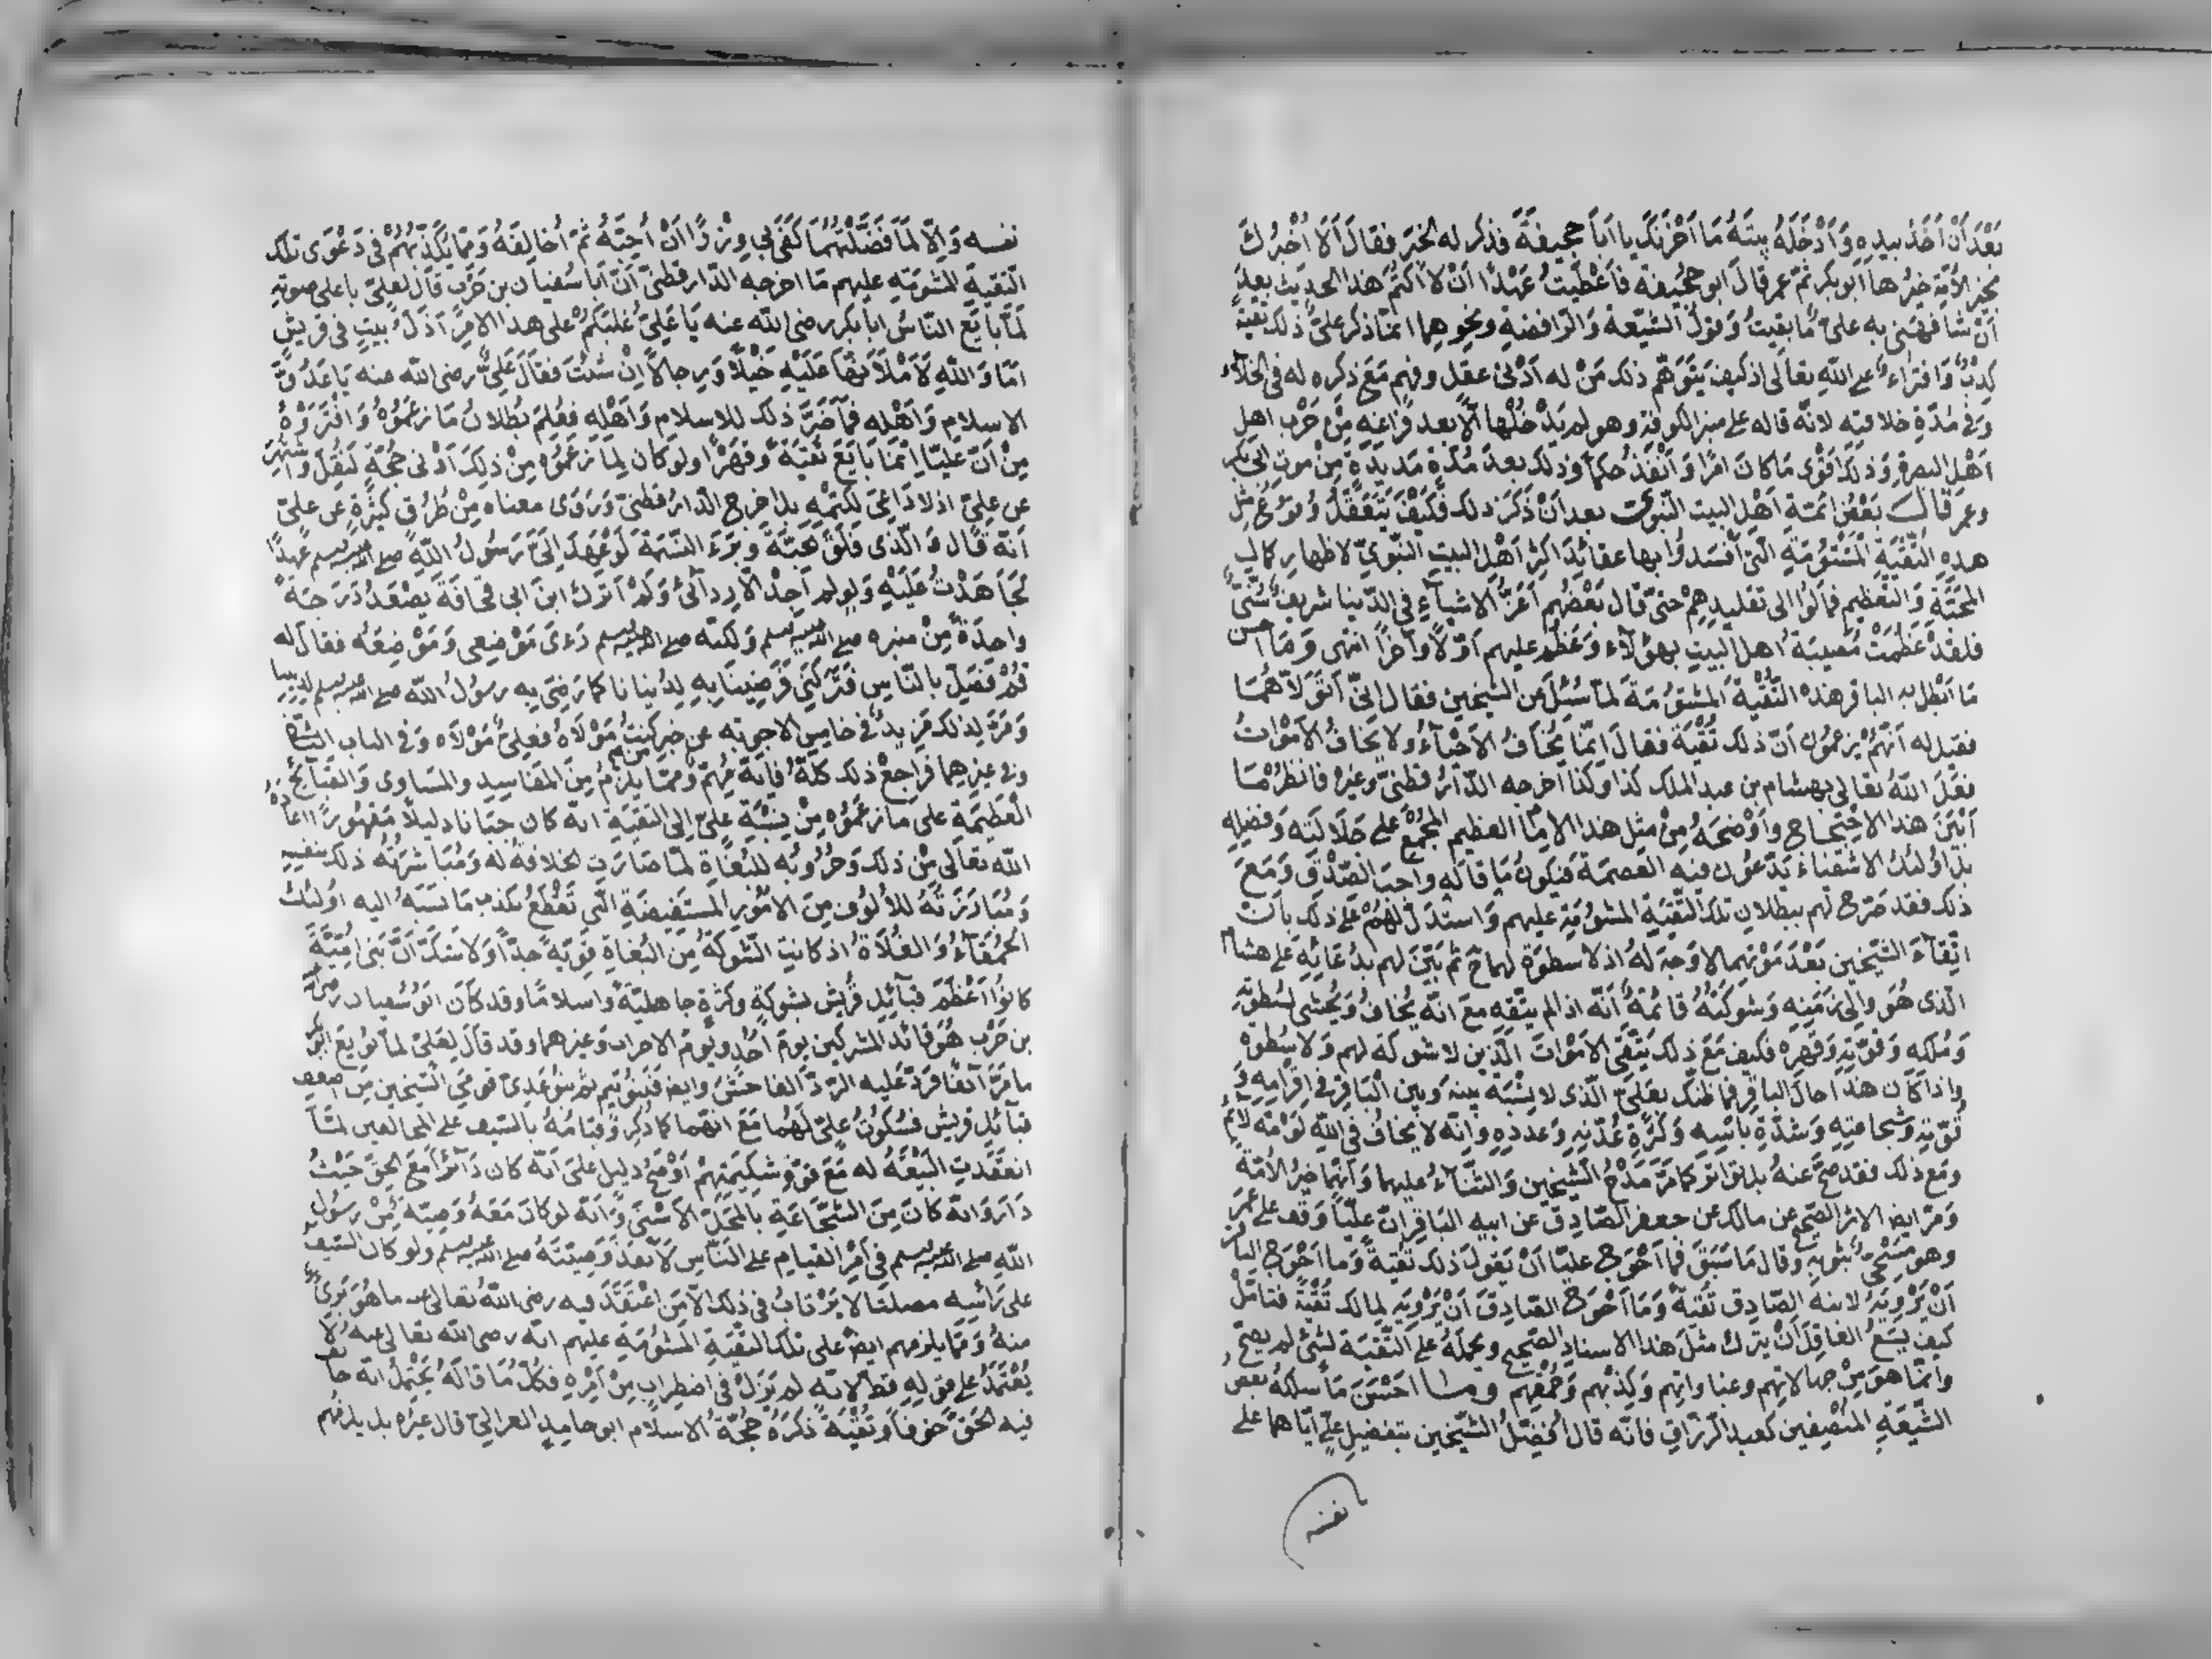 بَعْدَ اَنْ اَخَذَ بيدِهِ وَاَدْخَلَهُ بيتَهُ مَا اَحْزَنَكَ يا اَبَا جحيفَةَ فذكر له الخبَرَ فقالَ اَلَا اُخْبِرُكَ
بخيرِ الأمّةِ خيرُها اَبو بكرٍ ثمّ عمر قالَ ابو جُحَيفة فاَعْطَيتُ عَهْدًا اَنْ لا اكتُمَ هذا الحديثَ بعد
اَنْ شافهَني به علىّ مَّا بقيتُ وَقولُ الشيّعة وَالرّافضةِ ونحوِهِما انّما ذكر علىٌّ ذلك تقيّة
كذِبٌ وَافتراءٌ على اللّهِ تعَالى اذ كيفَ يَتَوَهّم ذلك مَنْ له اَدْنى عقلٍ وفهمٍ مَعَ ذكرِه له في الخلآءِ
وَفى مدّةِ خلافتِه لانّه قاله على منبرِ الكوفةِ وهو لم يَدْخُلْها اِلّا بعد فراغِه مِنْ حَرْبِ اهل
اَهْلِ البصرةِ وَذلكَ اَقْوى مَا كانَ امرًا وَاَنْفَذُ حكمًا وذلك بعدَ مُدّةٍ مَديدَةٍ مِنْ موتِ ابى بكر
وعمرَ قالَ بَعْضُ اَئمّةِ اَهْلِ البيت النّبوى بعد اَنْ ذَكَرَ ذلك فكَيْفَ يُتَعَقّلُ وُقوعُ مثل
هذهِ التّقيّةِ الْمَشْئومَةِ الّتى اَفْسَدُوا بها عقائدَ اكثرِ اَهْلِ البيتِ النّبَوىّ لاظهارِ كمالِ
المحبّةِ وَالتّعْظيم فمالُوا الى تقليدِهِمْ حتىّ قال بَعْضُهم اَعَزُّ الاشيآءِ في الدّنيا شريفٌ سُنّىٌّ
فلقدْ عَظُمَتْ مُصيبَةُ اهل البيتِ بهؤلآء وَعَظُمَ عليهم اَوّلًا وآخرًا انتهى وَمَا احسن
مَا اَبْطَلَ به الباقر هذه التَّقِيَّةَ المشئومَةَ لمّا سُئلَ عن الشّيخين فقال اِنّى اَتَوَلّاهُمَا
فقيلَ له اَنّهمْ يَزعمُونَ اَنّ ذلك تَقيّةٌ فقالَ اِنّما يُخَافُ الاَحيآءُ ولا يُخَافُ الاَمْواتُ
فعَلَ اللّهُ تعَالى بهشام بنِ عبد الملك كذا وكذا اخرجه الدّارقطنىّ وغيرُه فانظُرْ مَا
اَبْيَنَ هذا الاحتجاج وَاَوْضحَهُ مِنْ مثِلِ هذا الامَامِ العظيم المجْمَعِ على جَلالتِه وَفضلِه
بل اولئك الاشقياء يَدّعُونَ فيه العصمَة فيكونُ مَا قالَه واجبَ الصّدْقِ وَمَعَ
ذلك فقد صَرّح لهم ببطلانِ تلك التّقيّةِ المشئومَةِ عليهم وَاستدلَّ لهُمْ على ذلك باَنَّ
اتّقآءَ الشّيخين بَعْدَ مَوْتِهما لا وَجهَ لهُ اذ لا سطوةَ لهما ح ثم بَيّنَ لهم بدُعَائِه على هشام
الّذى هُوَ والِى زمَنِه وَشوكتُهُ قائمةٌ اَنّه اذا لم يتّقه معَ انّه يُخَافُ وَيُخشى لسَطوتِه
وَمُلكِه وَقوّتِه وَقهرِه فكيف مَعَ ذلك يَتّقى الاَمْواتَ الّذينَ لا شوكةَ لهم وَلا سَطوَة
واذا كَانَ هذا حالَ الباقِر فما ظنّكَ بعَلىّ الّذى لا نِسْبَةَ بينَهُ وَبين الْبَاقر في اِقدامِهِ وَ
قُوّتِه وَشجاعتِه وَشدّةِ باْسِه وَكثرَةِ عُدّتِه وَعَددِهِ وانّه لا يَخافُ فى اللّهِ لَوْمَةَ لآئِم
ومَع ذلك فقد صَحّ عنهُ بل تواتَر كما مَرّ مَدْحُ الشّيخين وَالثّنآءُ عليهما وَاَنّهما خيرُ الاُمّة
وَمَرّ ايضا الاثر الصّحيح عن مالك عن جعفر الصّادِق عن ابيه البَاقر اِنّ عليّاً وَقفَ على عمرَ
وهو مسَجّى بثوبه وَقال مَا سَبَقَ فما اَحْوَج عليّا اَنْ يَقولَ ذلك تَقيّةً وَما اَحْوَج الباقر
اَنْ يَرْوِيَهُ لابنهِ الصّادِقِ تقيّةً وَمَا اَحْوَجَ الصّادِقَ اَنْ يَرْوِيَه لمالك تَقيّةً فتامّلْ
كيف يَسَعُ العاقِلَ اَنْ يَتركَ مثلَ هذا الاسنادِ الصّحيح ويحملَهُ على التّقيّة لشئٍ لم يصحّ
وانّما هوَ مِنْ جهالاتِهم وغباواتِهم وَكذبِهم وَحُمقِهم وما احْسَنَ مَا سلكَهُ بعض
الشّيعَةِ المنْصِفين كعبدِ الرّزّاقِ فانّه قالَ اُفضّلُ الشّيخين بتفضيلِ علىٍّ ايّاهما على
نفسه
نفسه وَاِلّا لمَا فضّلْتُهُمَا كفَى بى وِزْرًا اَنْ اُحِبّهُ ثمّ اُخالِفَهُ وَمّما يُكذّبُهُمْ في دَعْوَى تلك
التّقيةِ المشومَةِ عليهم مَا اخرجه الدّارقطنىّ اَنّ اَبا سُفيانَ بن حَرْبٍ قال لعلىّ باعلى صوتِه
لمّا بايَعَ النّاسُ ابا بكر رضى اللّه عنه يَا عَلىّ غلبَكمْ على هذا الامرِ اَذَلّ بيتٍ في قريشٍ
امَا وَاللّهِ لَاَمْلَاَنّهَا عَلَيْهِ خَيْلًا وَرِجالًا اِنْ شئتَ فقالَ عَلىٌّ رضى اللّه عنه يَا عَدُوّ
الاسلامِ وَاَهْلِه فمآ ضَرّ ذلك للاسلامِ وَاَهْلِه فعُلِمَ بُطلانُ مَا زعَمُوهُ وَافْتَرَوْهُ
مِنْ اَنّ عليّا اِنّمَا بَايَعَ تقيّةً وَقهرًا ولو كان لِمَا زعَمُوه مِنْ ذلِكَ اَدْنى صحّةٍ لنُقِلَ واشتهرَ
عن علىّ اذ لا دَاعِىَ لكتْمِه بل اخرج الدّارقطنىّ وَرَوَى معناه مِنْ طُرُق كثيرةٍ عن علىّ
اَنّه قال وَالّذى فلَقَ الحبّةَ وَبَرَءَ النّسَمَةَ لَوْ عَهدَ اِلَىَّ رَسُولُ اللّه صلى الله عليه وسلم عَهدًا
لجَاهَدْتُ عَلَيْهِ وَلَو لم اَجدْ الّا رِدآئى وَلمْ اَترُك ابنَ ابى قحافَةَ يَصْعَدُ دَرَجَةً
واحدَةً مِنْ منبره صلى الله عليه وسلم وَلكنّه صلى الله عليه وسلم رَءى مَوْضِعى وَمَوْضِعَه فقالَ له
قُمْ فَصَلِّ بالنّاسِ فتَرَكَنى فَرَضِينَا بِه لِدُنيانا كما رَضِىَ بِه رسولُ اللّه صلى الله عليه وسلم لديننا
وَمَرّ لِذلك مَزيدٌ في خامِسِ الاجوبَة عن خبرِ مَنْ كنتُ مَوْلَاهُ فعلىٌّ مَوْلاه وَفى الباب الثّانى
وفى غيرهما فراجعْ ذلك كلّهُ فاِنّهُ مُهِمّ وَممّا يلزمُ مِن المفَاسِدِ والمسَاوى وَالقبآئحِ
الْعَظيمَة على مَا زعَمُوهُ مِنْ نِسْبَةِ علىّ اِلى التّقيّةِ انّه كان جبَانا ذليلًا مَقْهُورًا اعَاذَهُ
اللّه تعَالى مِنْ ذلك وَحُرُوبُه للبُغَاةِ لمّا صَارَت الخلافةُ له وَمُبَاشرَتُه ذلك بنفسِه
وَمُبَارزَتُه للاُلُوفِ مِنَ الامُورِ المسْتَفيضَةِ الّتى تَقْطَعُ بكذبِ مَا نسَبَهُ اليه اولئك
الحُمَقآءُ وَالغُلاةُ اذ كانتِ الشّوكةُ مِن البُغاةِ قويّةً جدّاً وَلا شكّ اَنّ بَنى اُمَيّةَ
كانُوا اَعْظَمَ قبآئِلِ قُريش شوكةً وكثرةً جاهليّةً واسلامًا وقد كَانَ ابُو سُفيان رضى
بن حَرْبٍ هُوَ قائد المشركين يومَ اُحُدٍ ويَومَ الاحزاب وَغيرِهما وقد قالَ لعَلىّ لمّا بُويعَ ابو بكر
ما مَرّ آنِفًا فردّ عَليه الرّدّ الفاحشَ وايضا فبَنُو تيم ثم بَنُو عَدِىّ قَومَى الشّيخين مِن اضعفِ
قبآئِلِ قريش فسُكوتُ علىّ لهُما مَعَ انّهما كما ذُكِر وَقيَامُهُ بالسّيف على المخالفين لمّا
انعَقَدتِ البَيْعَةُ له مَعَ قوّةِ شكيمَتِهم اَوْضَحُ دليلٍ على اَنّه كان دَآئرًا مَعَ الحقّ حَيْثُ
دَارَ وَانّهُ كانَ مِنَ الشّجَاعَةِ بالمحَلّ الاَسْنى وَاَنّه لو كانَ مَعَهُ وَصِيّةٌ مِنْ رسُولِ
اللّه صلى الله عليه وسلم في اَمْرِ القيامِ على النّاسِ لَاَنْفذَ وَصِيّتَهُ صلى الله عليه وسلم ولو كان السّيف
على رَاْسِه مصلتًا لا يَرْتابُ في ذلك الّا مَنِ اعْتقَدَ فيه رضى اللّه تعالى عنه ما هُوَ بَرىءٌ
منهُ وَمّمَا يلزمهم ايضا على تلك التّقيّةِ المشئومَةِ عليهم انّه رضى اللّه تعَالى عنه لا
يُعْتَمَدُ على قولِهِ قط لانّه لم يَزَلْ في اضطِرابٍ مِنْ اَمْرِهِ فكلّ مَا قالَهُ يَحتمِلُ انّه خالف
فيه الحَقّ خَوفًا وَتَقيّةً ذكرَهُ حُجّةُ الاسلام ابو حامدٍ الغزالىّ قال غيرُه بل يلزمُهم